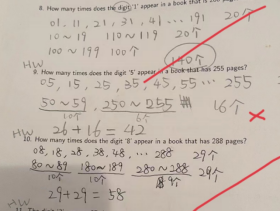 8. How many times does the digit '1' appear in a book that
01. 11, 21, 31, 41 ... 191 20个
10~19 110~119 20个
100~199 100个 140个
HW
9. How many times does the digit '5' appear in a book that has 255 pages?
05, 15, 25, 35, 45, 55 ... 255
50~59, 250~255 16个
10个 6个
26+16=42
HW
10. How many times does the digit '8' appear in a book that has 288 pages?
08, 18, 28, 38, 48, ... 288 29个
80~89 180~189 280~288 29个
10个 10个 9个
29+29=58
HW